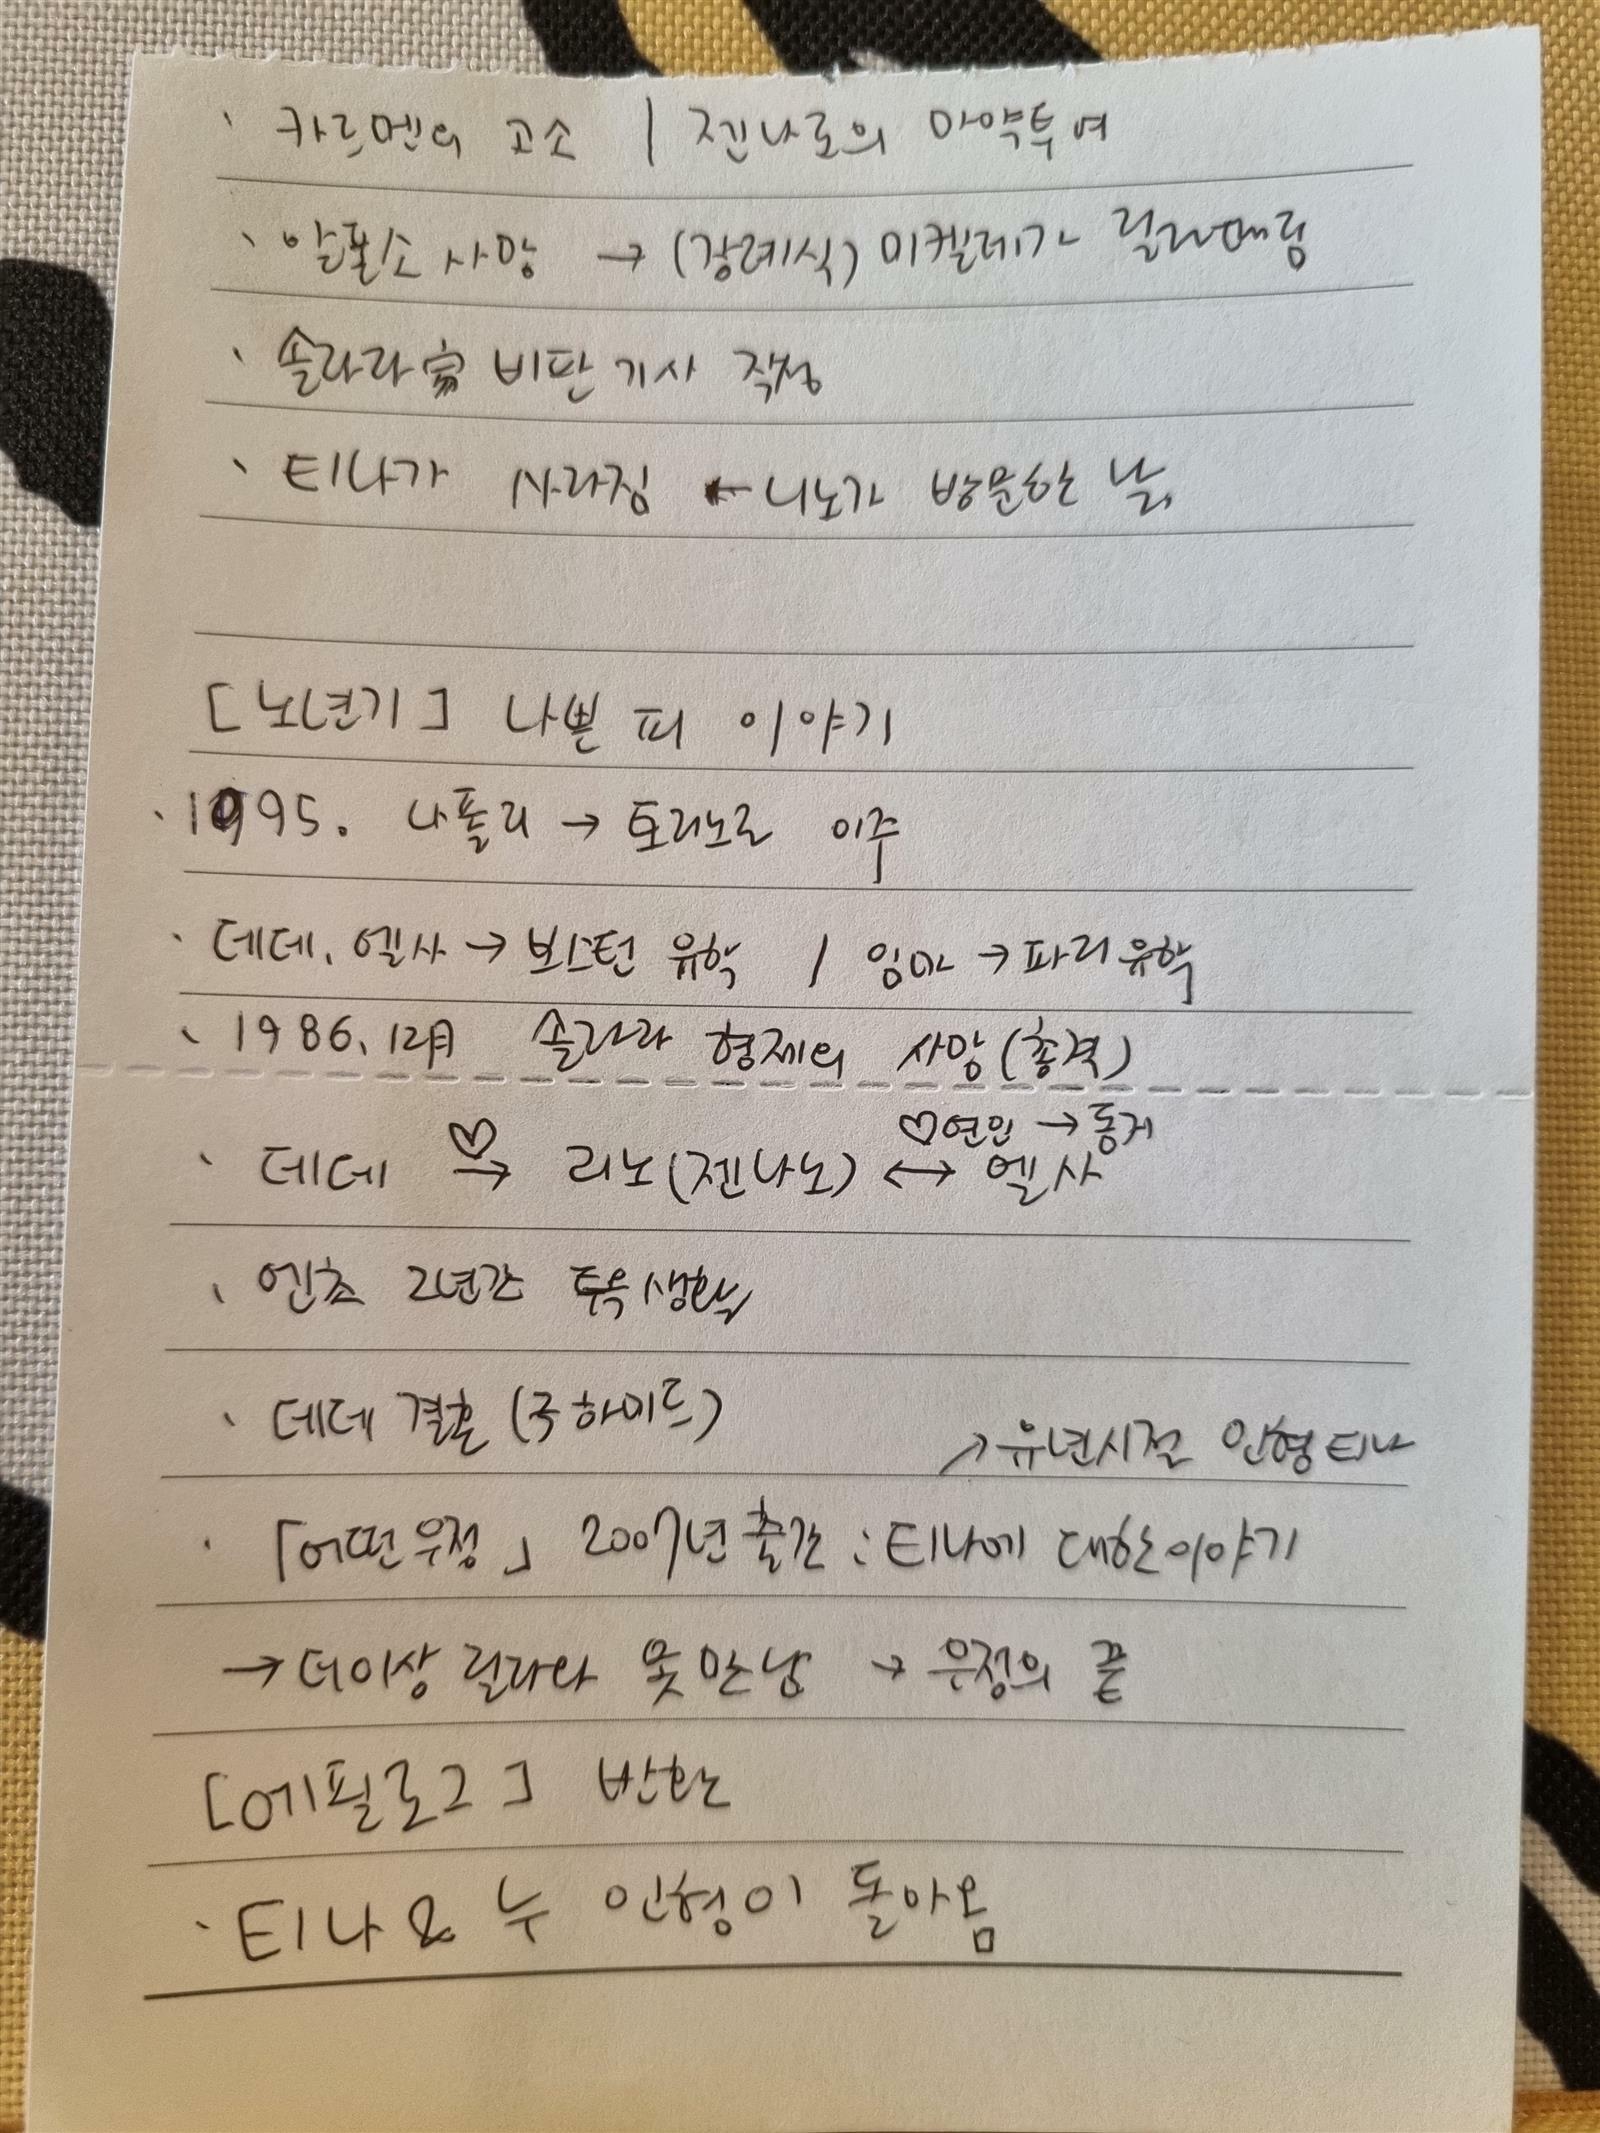 · 카르멘의 고소 | 젠나로의 마약투여
· 알폰소 사망 → (장례식) 미켈레가 릴라때림
· 솔라라家 비판 기사 작성
· 티나가 사라짐 ← 니노가 방문한 날.
[노년기] 나쁜 피 이야기
· 1995. 나폴리 → 토리노로 이주
· 데데, 엘사 → 보스턴 유학 / 임마 → 파리유학
· 1986. 12月 솔라라 형제의 사망(총격)
♡ ♡연인 → 동거
· 데데 → 리노(젠나노) ↔ 엘사
· 엔초 2년간 투옥생활
· 데데 결혼 (국하미드)
↗유년시절 인형 티나
· 「어떤우정」 2007년 출간 : 티나에 대한이야기
→ 더이상 릴라와 못만남 → 우정의 끝
[에필로그] 반환
· 티나 & 누 인형이 돌아옴